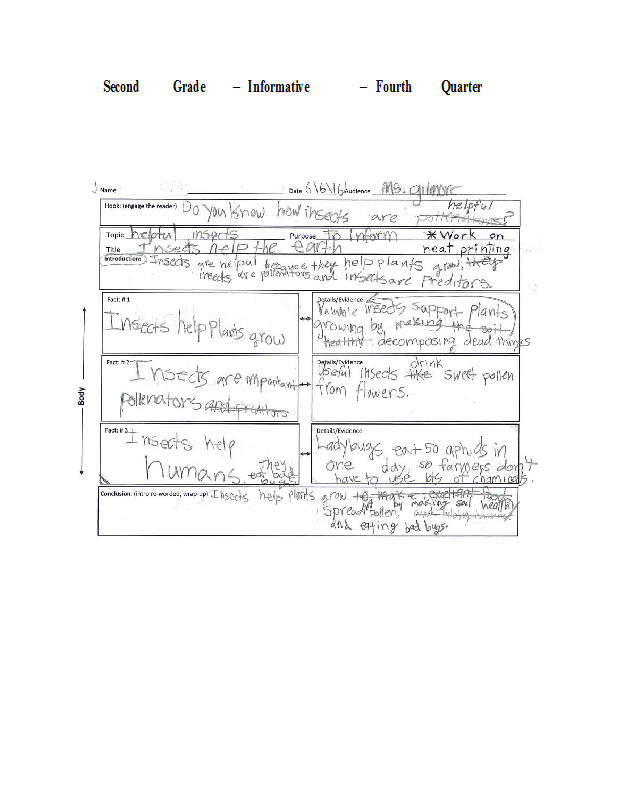 Second Grade – Informative – Fourth Quarter
Name Date 6\6\16 Audience Ms. Gilmore
Hook: (engage the reader) Do you know how insects are helpful pollenatores?
Topic helpful insects Purpose To Inform * Work on
Title Insects help the earth neat printing
Introduction: Insects are helpul becauee they help plants grow, they
insects are pollenators and insects are Preditors.
Fact: # 1
Insects help Plants grow
Details/Evidence
Valuable insects support plants
growing by making the soil
healthy. decomposing dead things
Body
Fact: # 2
Insects are important
Pollenators and
Details/Evidence drink
Useful insects like sweet pollen
from flowers.
Fact: # 3
Insects help
humans. They
eat bad
bugs
Details/Evidence
Ladybugs eat 50 aphids in
one day, so farmers don't
have to use lots of chamicals.
Conclusion: (intro re-worded, wrap-up) Insects help plants grow to make
by making soil healthy
Spread Pollen,
and eating bad bugs.